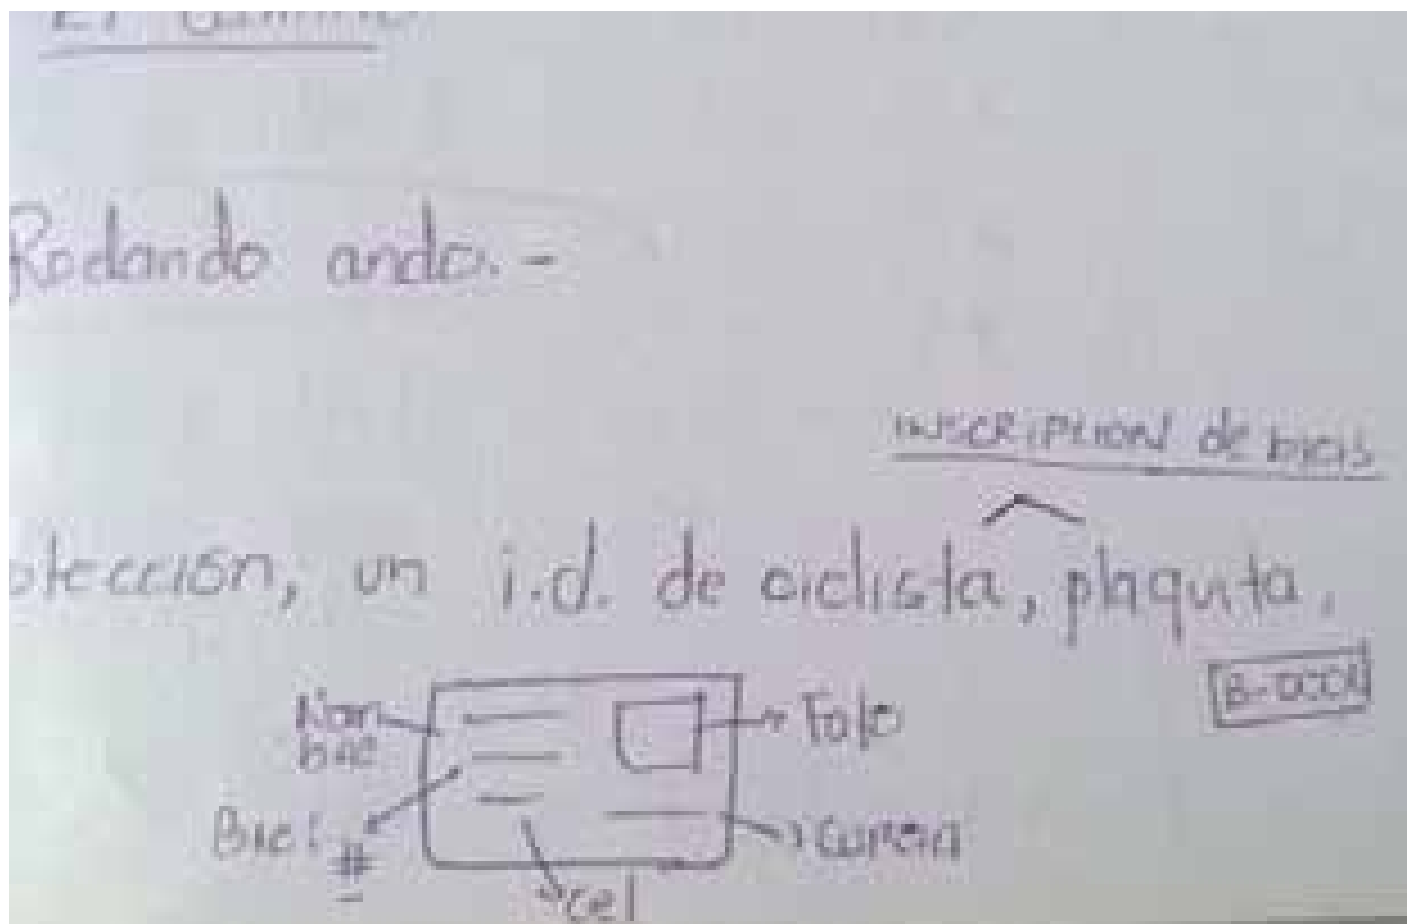 El
Rodando ando.-
INSCRIPCION de bicis
otección, un i.d. de ciclista, plaquita.
B-0001
Nom
bre
Foto
Bici
#
cel